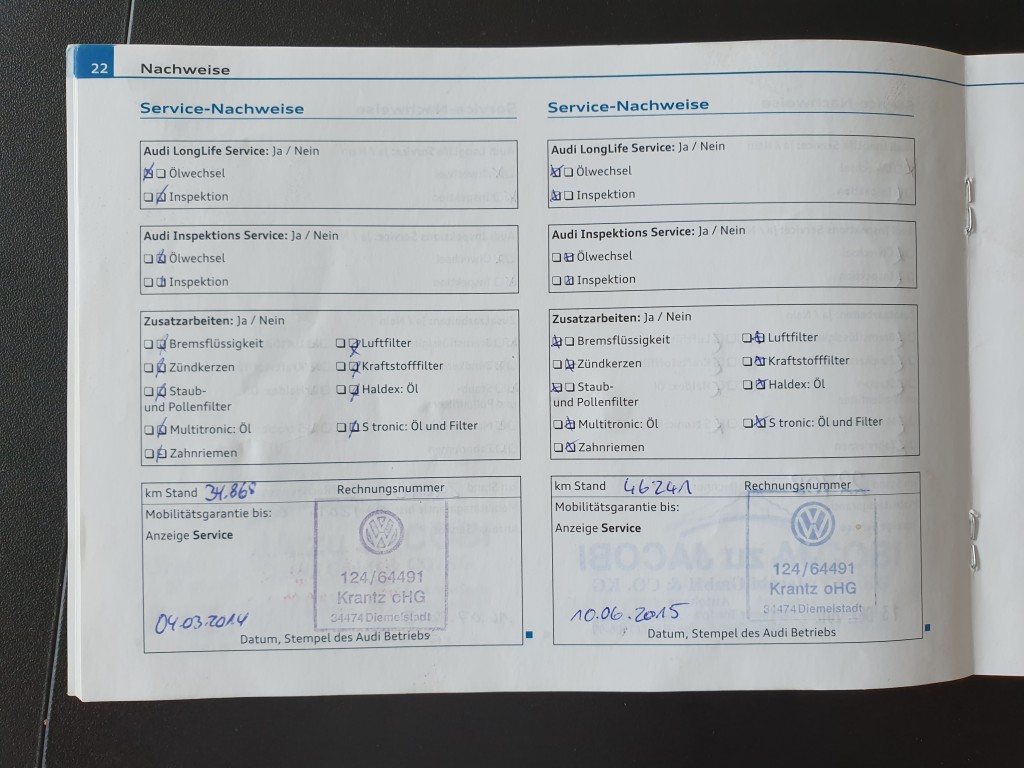 22 Nachweise
Service-Nachweise
Audi LongLife Service: Ja / Nein
Ölwechsel
Inspektion
Audi Inspektions Service: Ja / Nein
Ölwechsel
Inspektion
Zusatzarbeiten: Ja / Nein
Bremsflüssigkeit Luftfilter
Zündkerzen Kraftstofffilter
Staub- Haldex: Öl
und Pollenfilter
Multitronic: Öl S tronic: Öl und Filter
Zahnriemen
km Stand 34.868 Rechnungsnummer
Mobilitätsgarantie bis:
Anzeige Service
124/64491
Krantz oHG
34474 Diemelstadt
04.03.2014
Datum, Stempel des Audi Betriebs
Service-Nachweise
Audi LongLife Service: Ja / Nein
Ölwechsel
Inspektion
Audi Inspektions Service: Ja / Nein
Ölwechsel
Inspektion
Zusatzarbeiten: Ja / Nein
Bremsflüssigkeit Luftfilter
Zündkerzen Kraftstofffilter
Staub- Haldex: Öl
und Pollenfilter
Multitronic: Öl S tronic: Öl und Filter
Zahnriemen
km Stand 46241 Rechnungsnummer
Mobilitätsgarantie bis:
Anzeige Service
124/64491
Krantz oHG
34474 Diemelstadt
10.06.2015
Datum, Stempel des Audi Betriebs